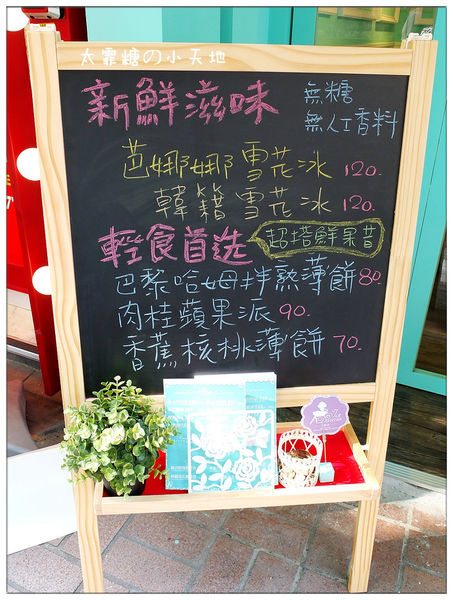 太霏糖の小天地
新鮮滋味
無糖
無人工香料
芭娜娜雪花冰 120.
韓籍雪花冰 120.
輕食首选
超搭鮮果昔
巴黎哈姆拌熱薄餅 80.
肉桂蘋果派 90.
香蕉核桃薄餅 70.